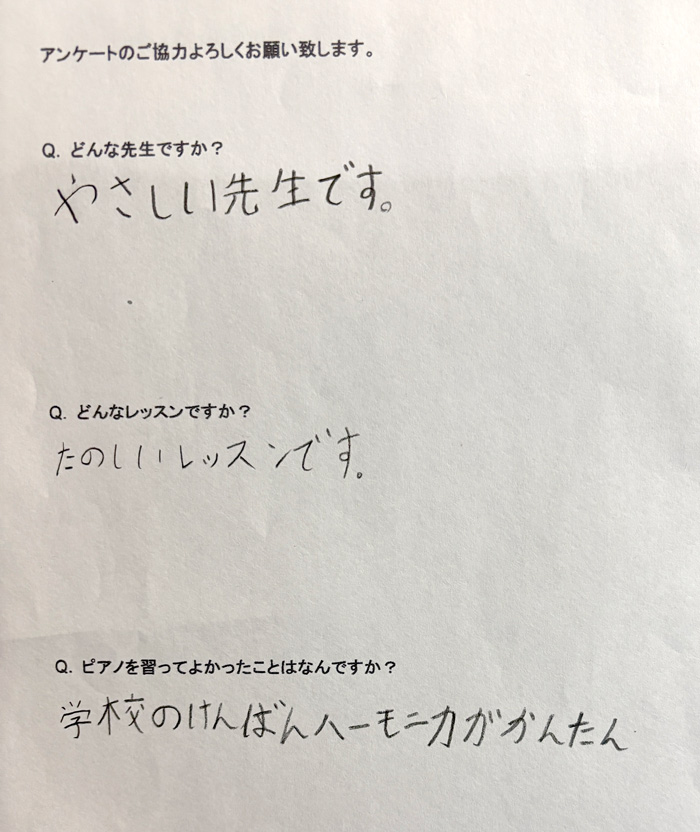 アンケートのご協力よろしくお願い致します。
Q. どんな先生ですか？
やさしい先生です。
Q. どんなレッスンですか？
たのしいレッスンです。
Q. ピアノを習ってよかったことはなんですか？
学校のけんばんハーモニカがかんたん